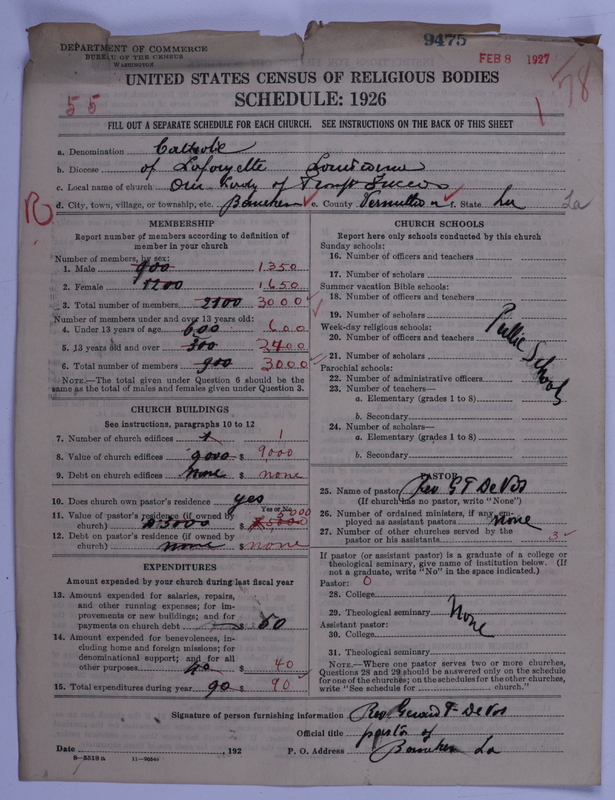 9475
DEPARTMENT OF COMMERCE
BUREAU OF THE CENSUS
WASHINGTON
FEB 8 1927
1 78
UNITED STATES CENSUS OF RELIGIOUS BODIES
55
SCHEDULE: 1926
FILL OUT A SEPARATE SCHEDULE FOR EACH CHURCH. SEE INSTRUCTIONS ON THE BACK OF THIS SHEET
a. Denomination Catholic
b. Diocese of Lafayette Louisiana
c. Local name of church Our Lady of Prompt Succor
d. City, town, village, or township, etc. e. County Vermilion f. State La La
MEMBERSHIP
Report number of members according to definition of
member in your church
Number of members, by sex:
1. Male 900 1350
2. Female 1200 1650
3. Total number of members 2100 3000
Number of members under and over 13 years old:
4. Under 13 years of age 600 600
5. 13 years old and over 300 2400
6. Total number of members 900 3000
NOTE.—The total given under Question 6 should be the
same as the total of males and females given under Question 3.
CHURCH BUILDINGS
See instructions, paragraphs 10 to 12
7. Number of church edifices 1 1
8. Value of church edifices 9000 $ 9000
9. Debt on church edifices none $ none
10. Does church own pastor's residence yes
Yes or No
11. Value of pastor's residence (if owned by
church) $3000 $ 5000 5000
12. Debt on pastor's residence (if owned by
church) none $ none
EXPENDITURES
Amount expended by your church during last fiscal year
13. Amount expended for salaries, repairs,
and other running expenses; for im-
provements or new buildings; and for
payments on church debt $ 50
14. Amount expended for benevolences, in-
cluding home and foreign missions; for
denominational support; and for all
other purposes 40 $ 40
15. Total expenditures during year 90 $ 90
CHURCH SCHOOLS
Report here only schools conducted by this church
Sunday schools:
16. Number of officers and teachers
17. Number of scholars
Summer vacation Bible schools:
18. Number of officers and teachers
19. Number of scholars
Week-day religious schools:
20. Number of officers and teachers
21. Number of scholars
Public Schools
Parochial schools:
22. Number of administrative officers
23. Number of teachers—
a. Elementary (grades 1 to 8)
b. Secondary
24. Number of scholars—
a. Elementary (grades 1 to 8)
b. Secondary
PASTOR
25. Name of pastor Rev G F De Vos
(If church has no pastor, write "None")
26. Number of ordained ministers, if any, em-
ployed as assistant pastors none
27. Number of other churches served by the
pastor or his assistants 3
If pastor (or assistant pastor) is a graduate of a college or
theological seminary, give name of institution below. (If
not a graduate, write "No" in the space indicated.)
Pastor: 0
28. College
29. Theological seminary None
Assistant pastor:
30. College
31. Theological seminary
NOTE.—Where one pastor serves two or more churches,
Questions 28 and 29 should be answered only on the schedule
for one of the churches; on the schedules for the other churches,
write "See schedule for church."
Signature of person furnishing information Rev Gerard F. De Vos
Official title pastor of
Date , 192 P. O. Address La
8—5518a 11—9034